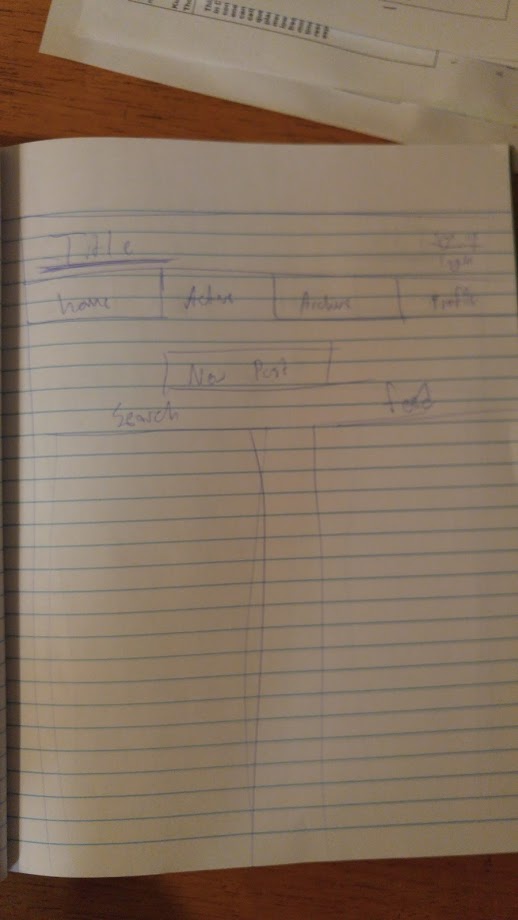 Title
Login
home Active Archive Profile
New Post
Search feed